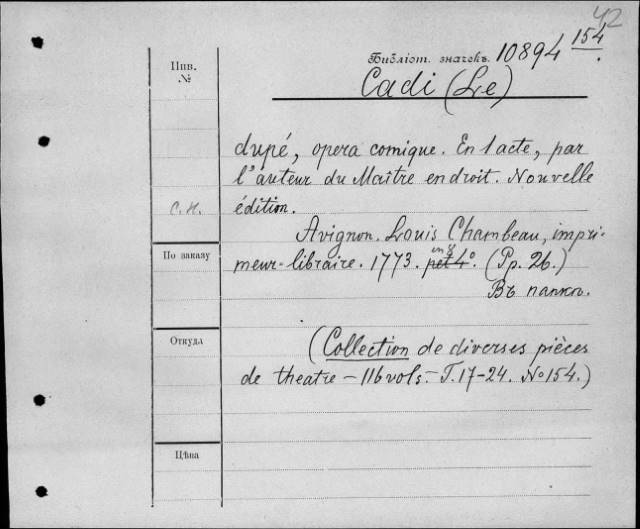 42
Библіот. значекъ. 10894 154.
Инв.
№
Cadi (Le)
dupé, opera comique. En 1 acte, par
l'auteur du Maître en droit. Nouvelle
édition.
С.Н.
Avignon. Louis Chambeau, impri-
meur-libraire. 1773. pet 4°. in 8 (Pp. 26.)
Въ папкѣ.
По заказу
Откуда
(Collection de diverses pièces
de theatre – 116 vols. – T. 17–24. No 154.)
Цѣна